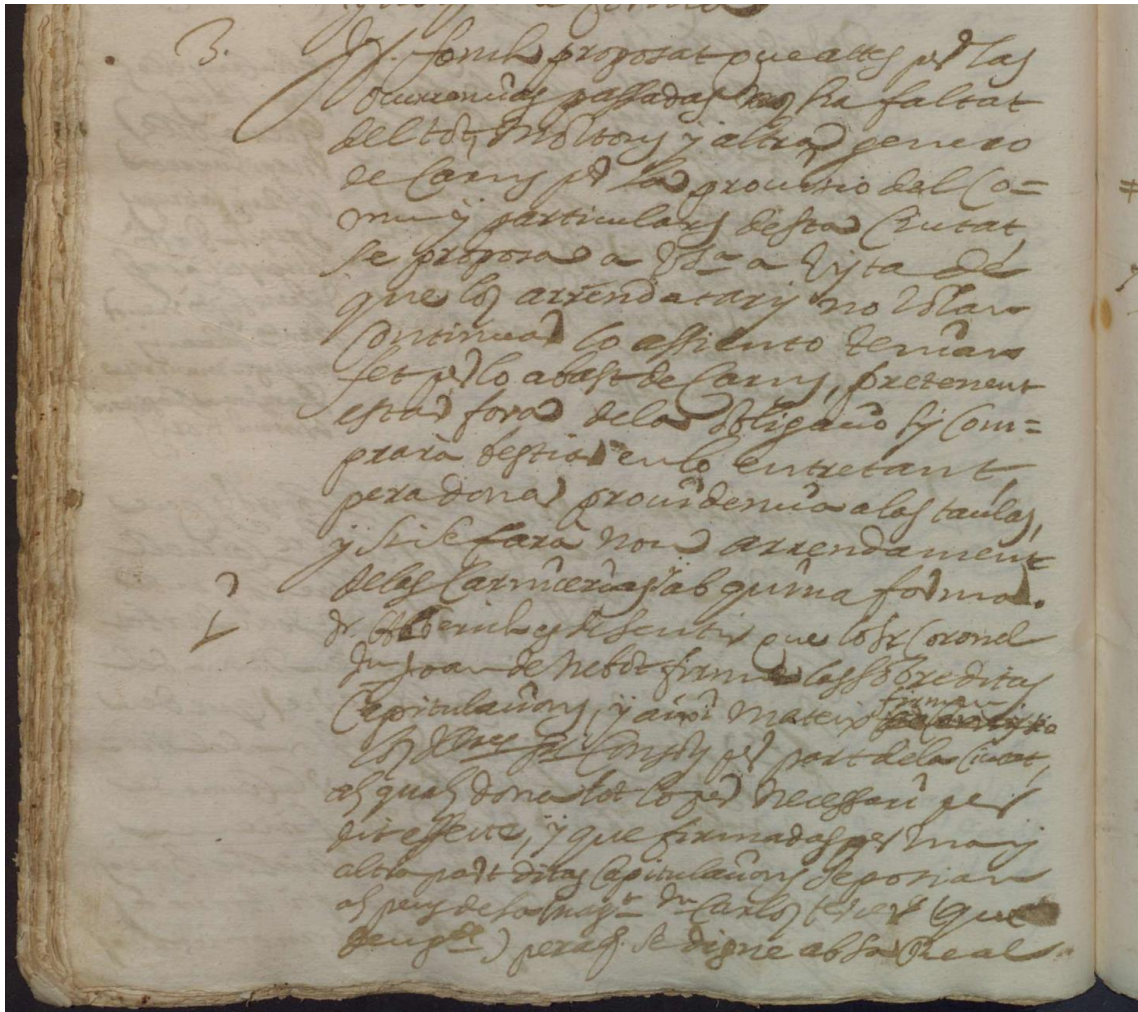 y la forma
3. It. fonch proposat que attes per las
ocurrencias passadas nos ha faltat
del tot, Moltons y altra genero
de Carns per la provisio del Co=
mu y particulars desta Ciutat,
se proposa a VSa a Vista de
que los arrendataris no volan
Continuar lo assiento tenian
fet per lo abast de Carns, pretenent
estar fora de la obligacio si Com=
prarà bestiar en lo entretant,
pera donar providencia a las taulas,
y si se farà nou arrendament
de las Carnicerias, ab quina forma.
1 Dr. Alberich es de sentir que lo Sr Coronel
Dn Joan de Nebot firme las sobreditas
Capitulacions, y aixi mateix firmen
los Consols per part de la Ciutat,
als quals dona tot lo poder necessari per
dit effecte, y que firmadas per una y
altra part ditas Capitulacions se posian
als peus de la Magt. Dn Carlos tercer (que
Deu gde.) peraq. se digne ab sa Real